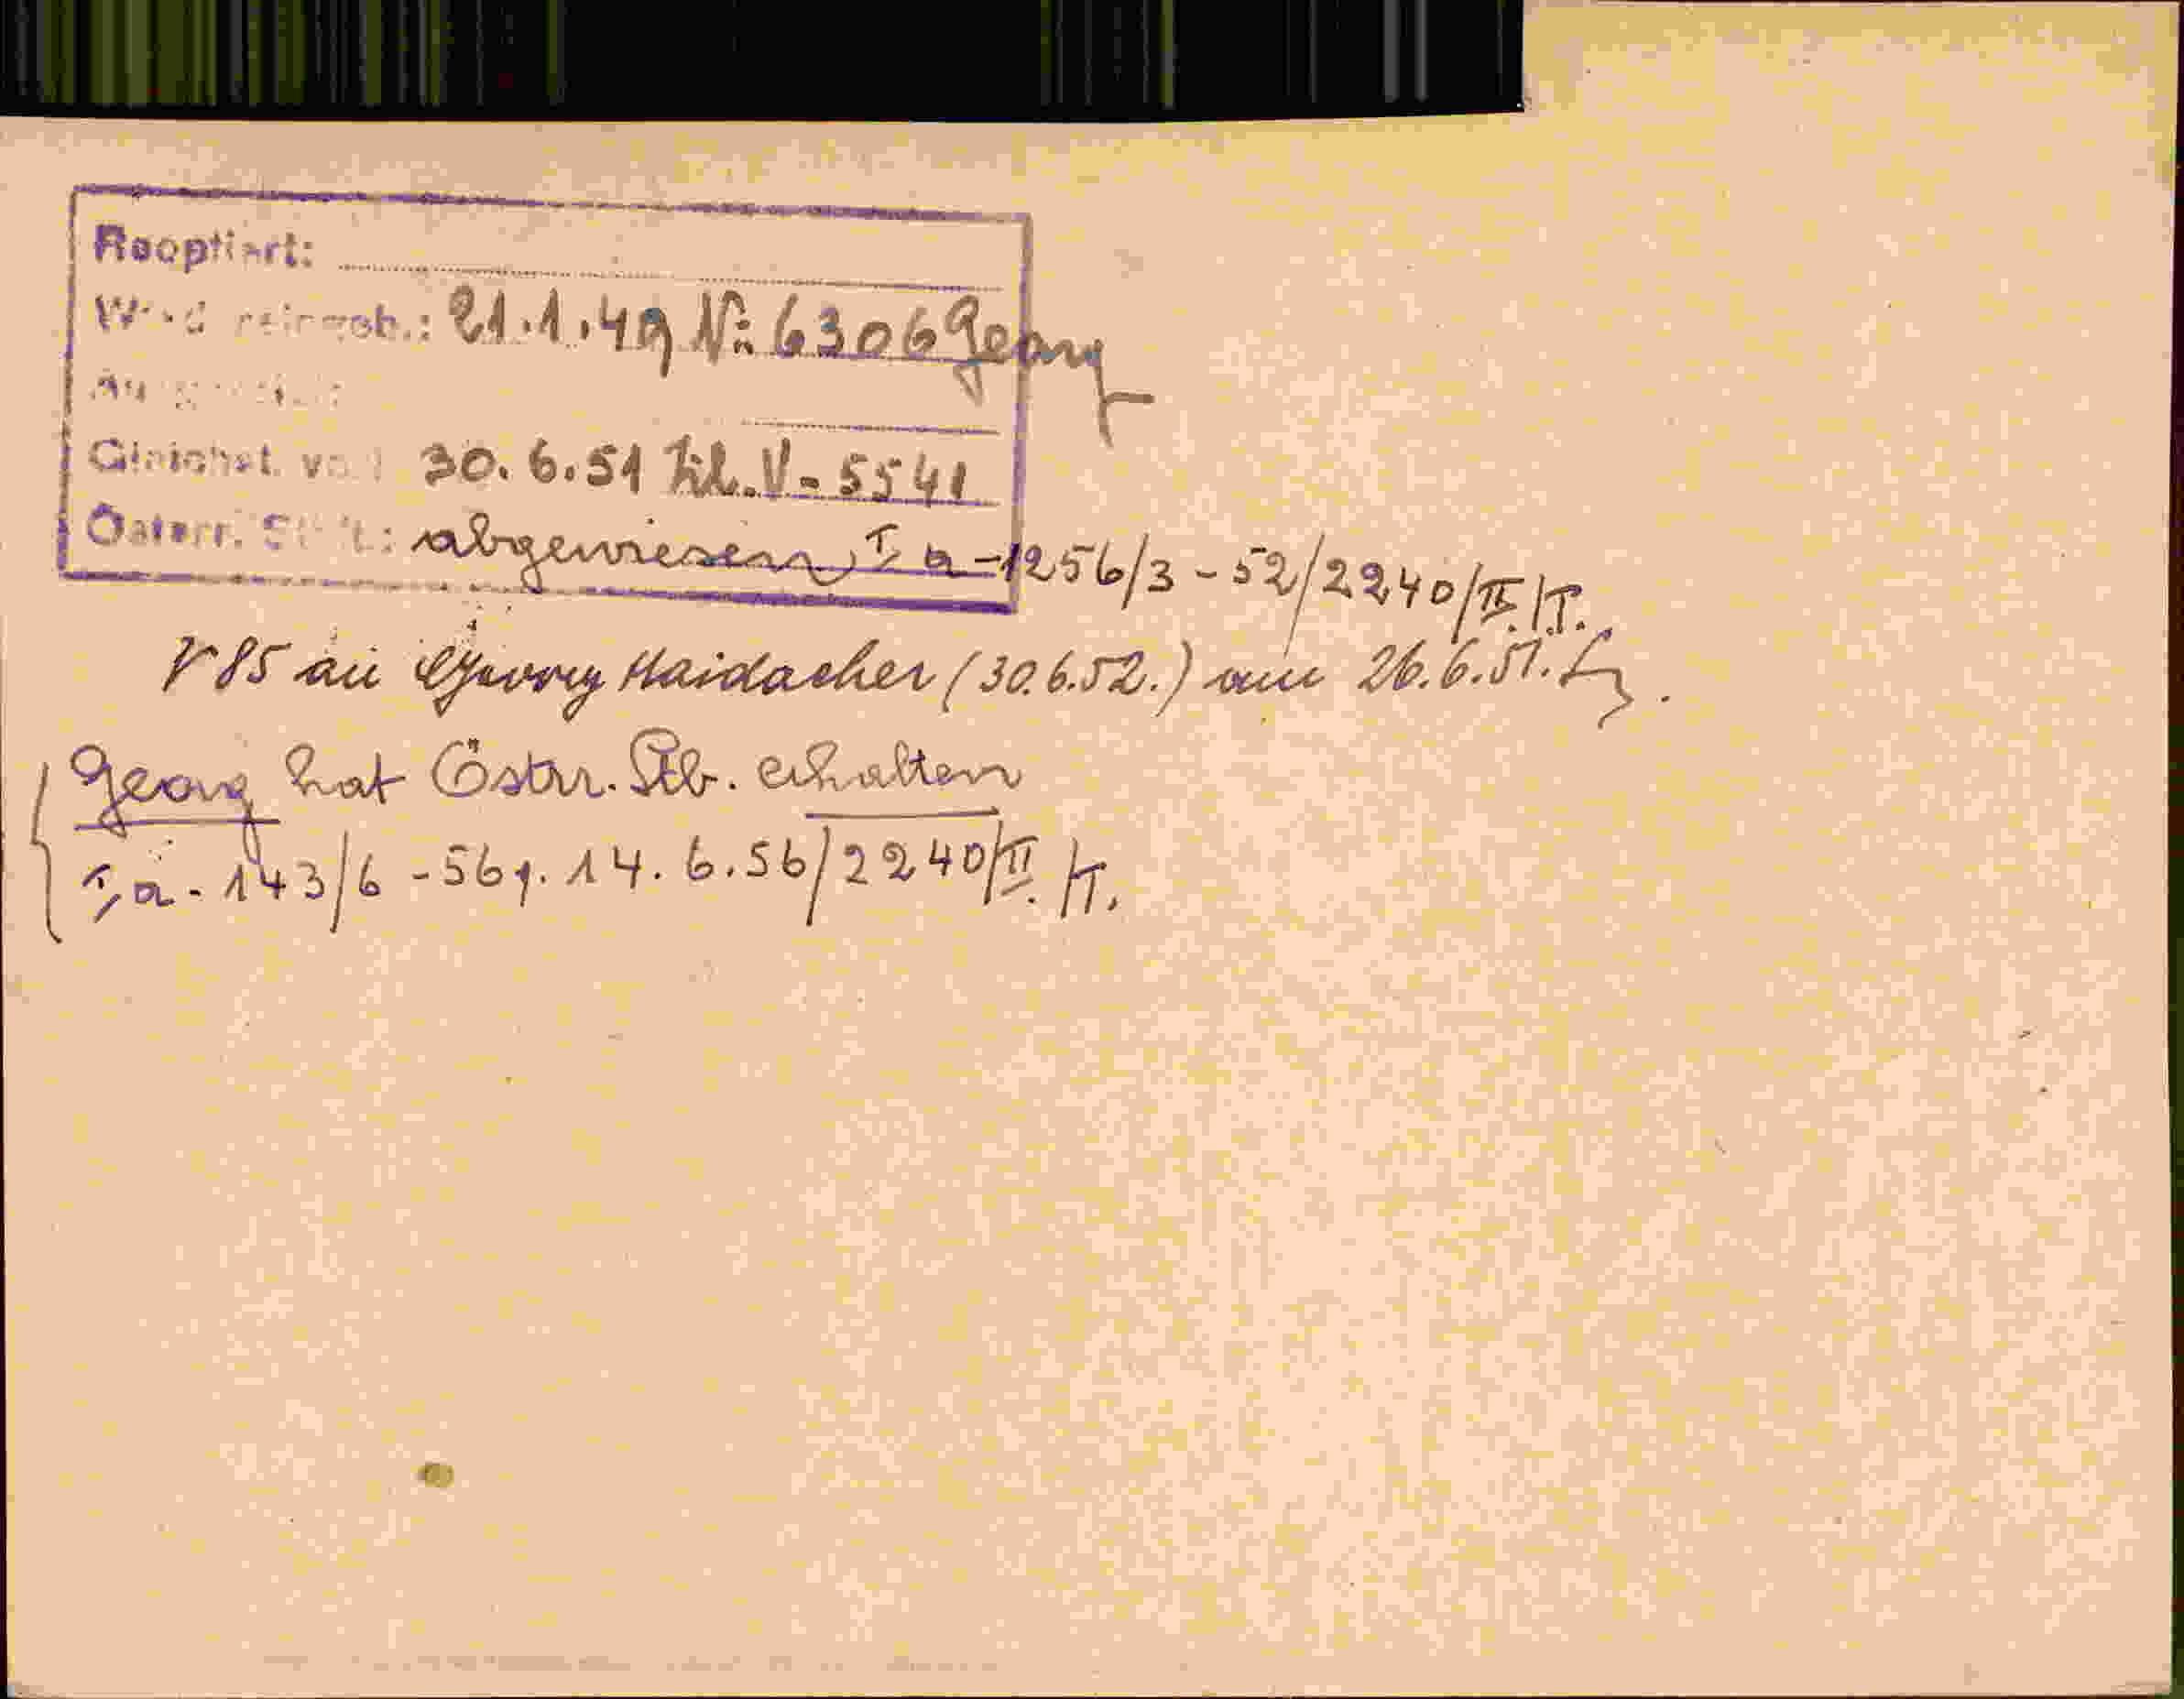 Reoptiert:
21.1.49 Nr. 6306 Georg
Gleichst. 30.6.51 Zl. V-5541
Österr. abgewiesen Ia-1256/3-52/2240/II./T.
V 85 an Georg Haidacher (30.6.52.) am 26.6.51.
Georg hat Östrr. Stb. erhalten
Ia-143/6-56, 14.6.56/2240/II./T.